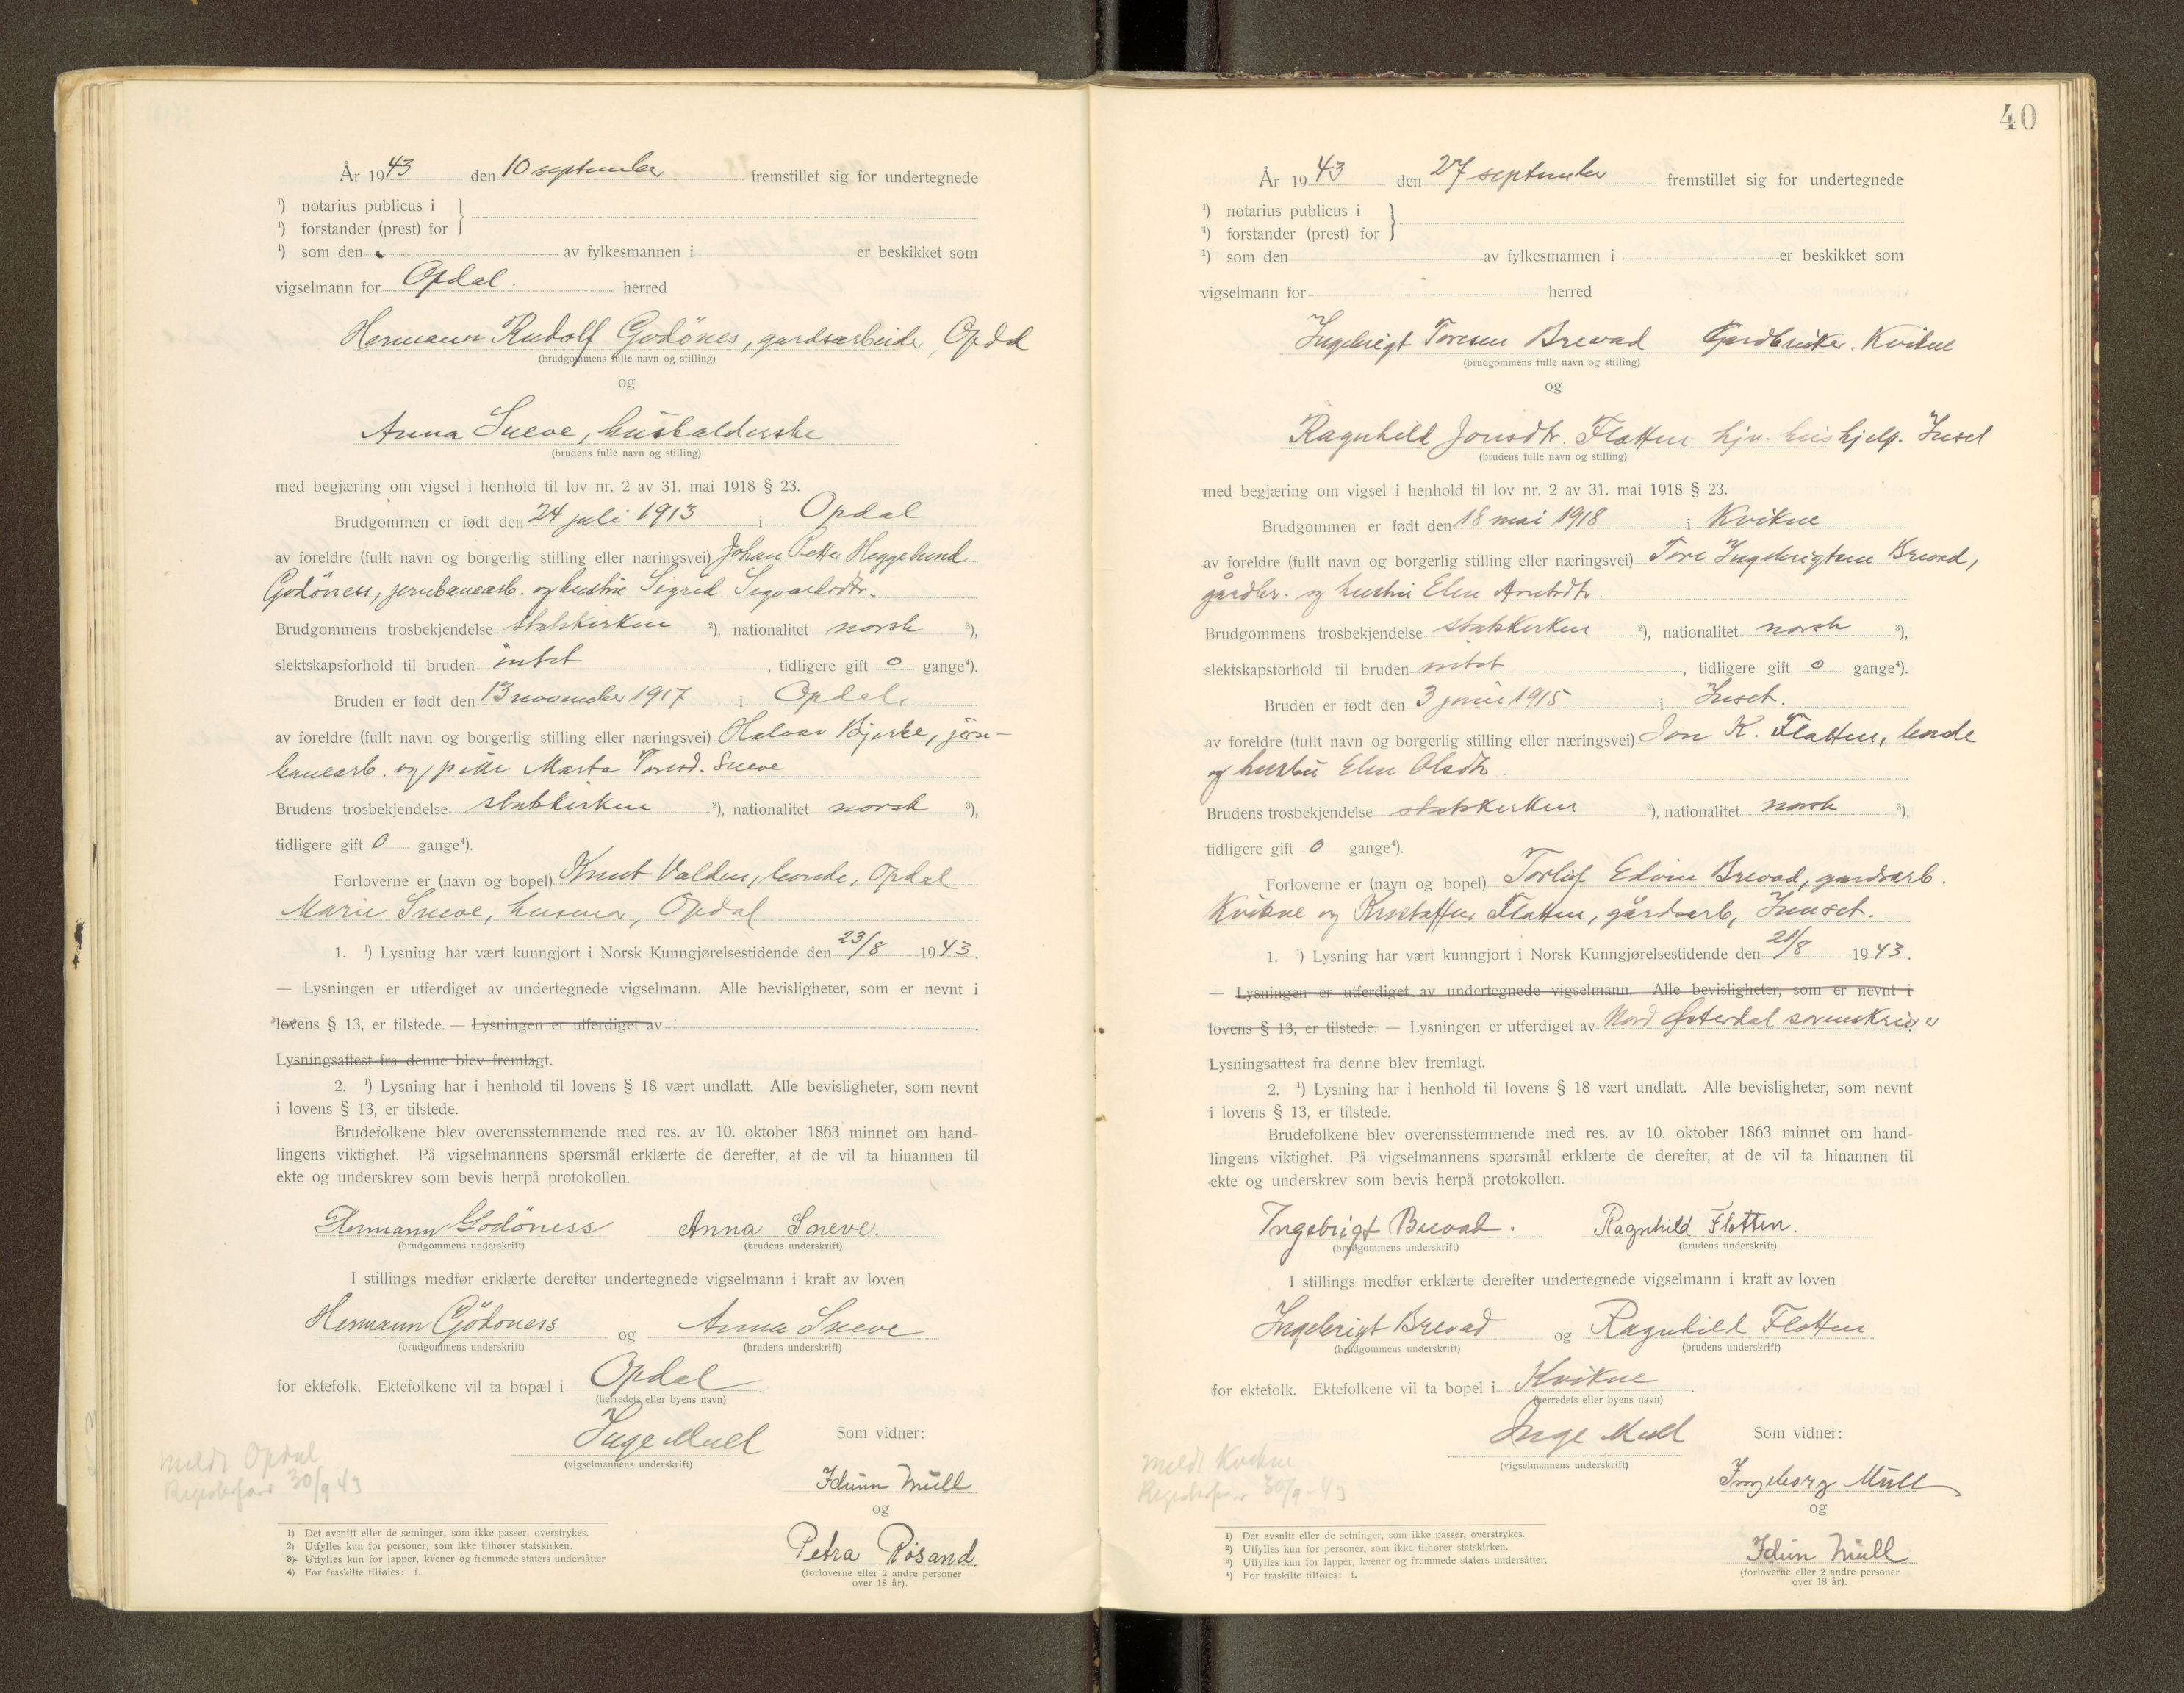 År 1943 den 10 september fremstillet sig for undertegnede
¹) notarius publicus i
¹) forstander (prest) for
¹) som den av fylkesmannen i er beskikket som
vigselmann for Opdal. herred
Hermann Rudolf Godönes, gardsarbeider, Opdal
(brudgommens fulle navn og stilling)
og
Anna Sneve, husholderske
(brudens fulle navn og stilling)
med begjæring om vigsel i henhold til lov nr. 2 av 31. mai 1918 § 23.
Brudgommen er født den 24 juli 1913 i Opdal
av foreldre (fullt navn og borgerlig stilling eller næringsvei) Johan Petter Heggelund
Godöness, jernbanearb. og hustru Sigrid Sigvardsdtr.
Brudgommens trosbekjendelse statskirken ²), nationalitet norsk ³),
slektskapsforhold til bruden intet, tidligere gift 0 gange⁴).
Bruden er født den 13 november 1917 i Opdal.
av foreldre (fullt navn og borgerlig stilling eller næringsvei) Halvar Bjerke, jern-
banearb. og pike Marta Torsd. Sneve
Brudens trosbekjendelse statskirken ²), nationalitet norsk ³),
tidligere gift 0 gange⁴).
Forloverne er (navn og bopel) Knut Valden, bonde, Opdal
Marie Sneve, husmor, Opdal
1. ¹) Lysning har vært kunngjort i Norsk Kunngjørelsestidende den 23/8 1943.
— Lysningen er utferdiget av undertegnede vigselmann. Alle bevisligheter, som er nevnt i
lovens § 13, er tilstede. — Lysningen er utferdiget av
Lysningsattest fra denne blev fremlagt.
2. ¹) Lysning har i henhold til lovens § 18 vært undlatt. Alle bevisligheter, som nevnt
i lovens § 13, er tilstede.
Brudefolkene blev overensstemmende med res. av 10. oktober 1863 minnet om hand-
lingens viktighet. På vigselmannens spørsmål erklærte de derefter, at de vil ta hinannen til
ekte og underskrev som bevis herpå protokollen.
Hermann Godöness Anna Sneve.
(brudgommens underskrift) (brudens underskrift)
I stillings medfør erklærte derefter undertegnede vigselmann i kraft av loven
Hermann Godöness og Anna Sneve
(brudgommens underskrift) (brudens underskrift)
for ektefolk. Ektefolkene vil ta bopæl i Opdal.
(herredets eller byens navn)
Inge Mull Som vidner:
(vigselmannens underskrift)
Idunn Mull
og
Petra Røsand.
(forloverne eller 2 andre personer
over 18 år).
Meldt Opdal
30/9 43
1) Det avsnitt eller de setninger, som ikke passer, overstrykes.
2) Utfylles kun for personer, som ikke tilhører statskirken.
3) Utfylles kun for lapper, kvener og fremmede staters undersåtter
4) For fraskilte tilføies: f.
40
År 1943 den 27 september fremstillet sig for undertegnede
¹) notarius publicus i
¹) forstander (prest) for
¹) som den av fylkesmannen i er beskikket som
vigselmann for herred
Ingebrigt Toresen Brevad Gardbruker. Kvikne
(brudgommens fulle navn og stilling)
og
Ragnhild Jonsdtr. Flatten hjv. hushjelp. Inset
(brudens fulle navn og stilling)
med begjæring om vigsel i henhold til lov nr. 2 av 31. mai 1918 § 23.
Brudgommen er født den 18 mai 1918 i Kvikne
av foreldre (fullt navn og borgerlig stilling eller næringsvei) Tore Ingebrigtsen Brevad,
gårdbr. og hustru Elen Arntsdtr.
Brudgommens trosbekjendelse statskirken ²), nationalitet norsk ³),
slektskapsforhold til bruden intet, tidligere gift 0 gange⁴).
Bruden er født den 3 juni 1915 i Inset.
av foreldre (fullt navn og borgerlig stilling eller næringsvei) Jon K. Flatten, bonde
og hustru Elen Olsdtr.
Brudens trosbekjendelse statskirken ²), nationalitet norsk ³),
tidligere gift 0 gange⁴).
Forloverne er (navn og bopel) Torlöf Edvin Brevad, gardsarb.
Kvikne og Kristoffer Flatten, gårdsarb, Innset.
1. ¹) Lysning har vært kunngjort i Norsk Kunngjørelsestidende den 21/8 1943.
— Lysningen er utferdiget av undertegnede vigselmann. Alle bevisligheter, som er nevnt i
lovens § 13, er tilstede. — Lysningen er utferdiget av Nord Østerdal sorenskriver
Lysningsattest fra denne blev fremlagt.
2. ¹) Lysning har i henhold til lovens § 18 vært undlatt. Alle bevisligheter, som nevnt
i lovens § 13, er tilstede.
Brudefolkene blev overensstemmende med res. av 10. oktober 1863 minnet om hand-
lingens viktighet. På vigselmannens spørsmål erklærte de derefter, at de vil ta hinannen til
ekte og underskrev som bevis herpå protokollen.
Ingebrigt Brevad. Ragnhild Flatten.
(brudgommens underskrift) (brudens underskrift)
I stillings medfør erklærte derefter undertegnede vigselmann i kraft av loven
Ingebrigt Brevad og Ragnhild Flatten
(brudgommens underskrift) (brudens underskrift)
for ektefolk. Ektefolkene vil ta bopel i Kvikne.
(herredets eller byens navn)
Inge Mull Som vidner:
(vigselmannens underskrift)
Ingeborg Mull
og
Idun Mull
(forloverne eller 2 andre personer
over 18 år).
Meldt Kvikne
30/9-43
1) Det avsnitt eller de setninger, som ikke passer, overstrykes.
2) Utfylles kun for personer, som ikke tilhører statskirken.
3) Utfylles kun for lapper, kvener og fremmede staters undersåtter.
4) For fraskilte tilføies: f.